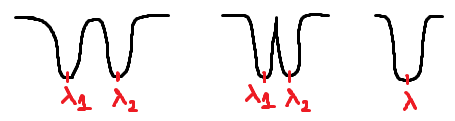 λ1 λ2 λ1 λ2 λ